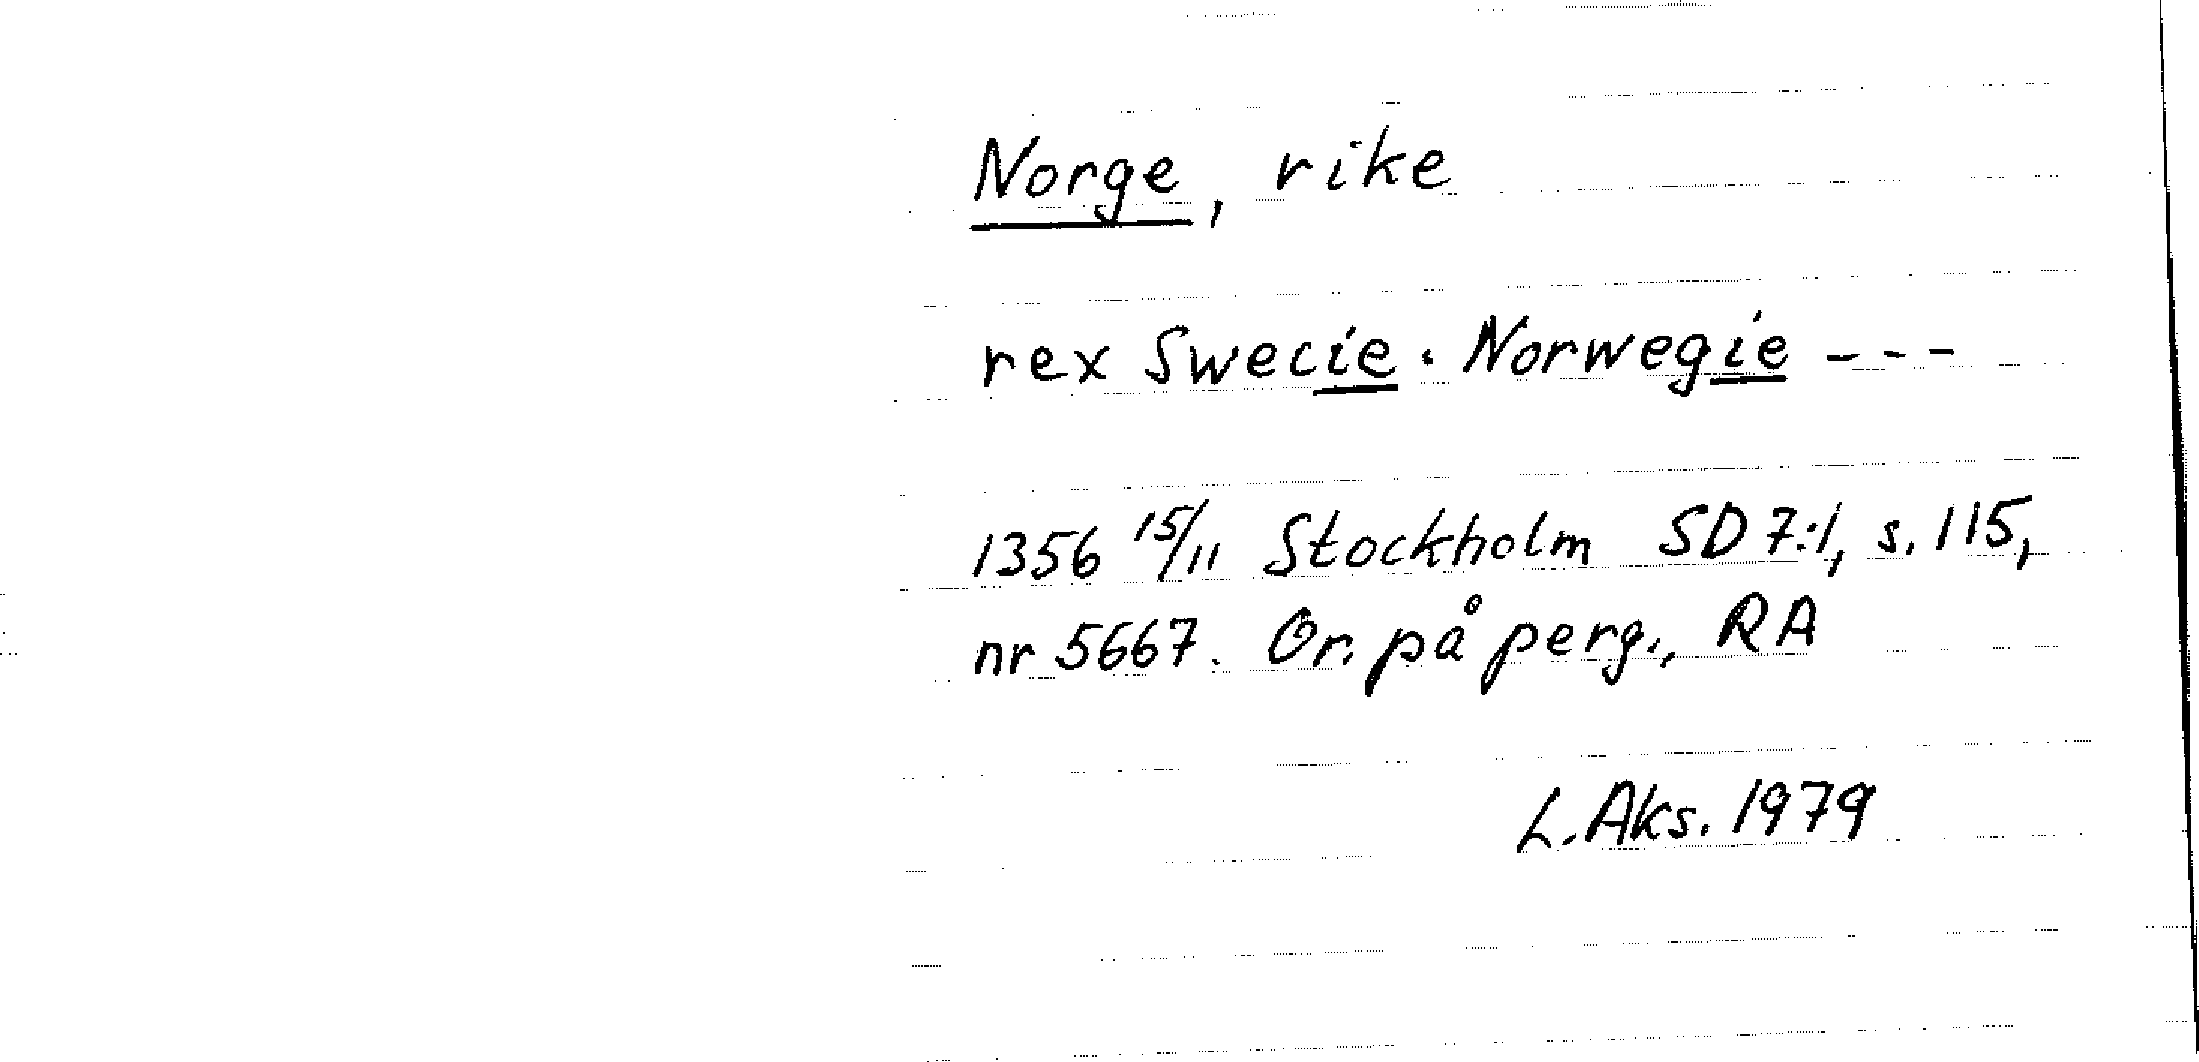 Norge, rike
rex Swecie. Norwegie ---
1356 15/11 Stockholm SD 7:1, s. 115,
nr 5667. Or. på perg., RA
L. Aks. 1979